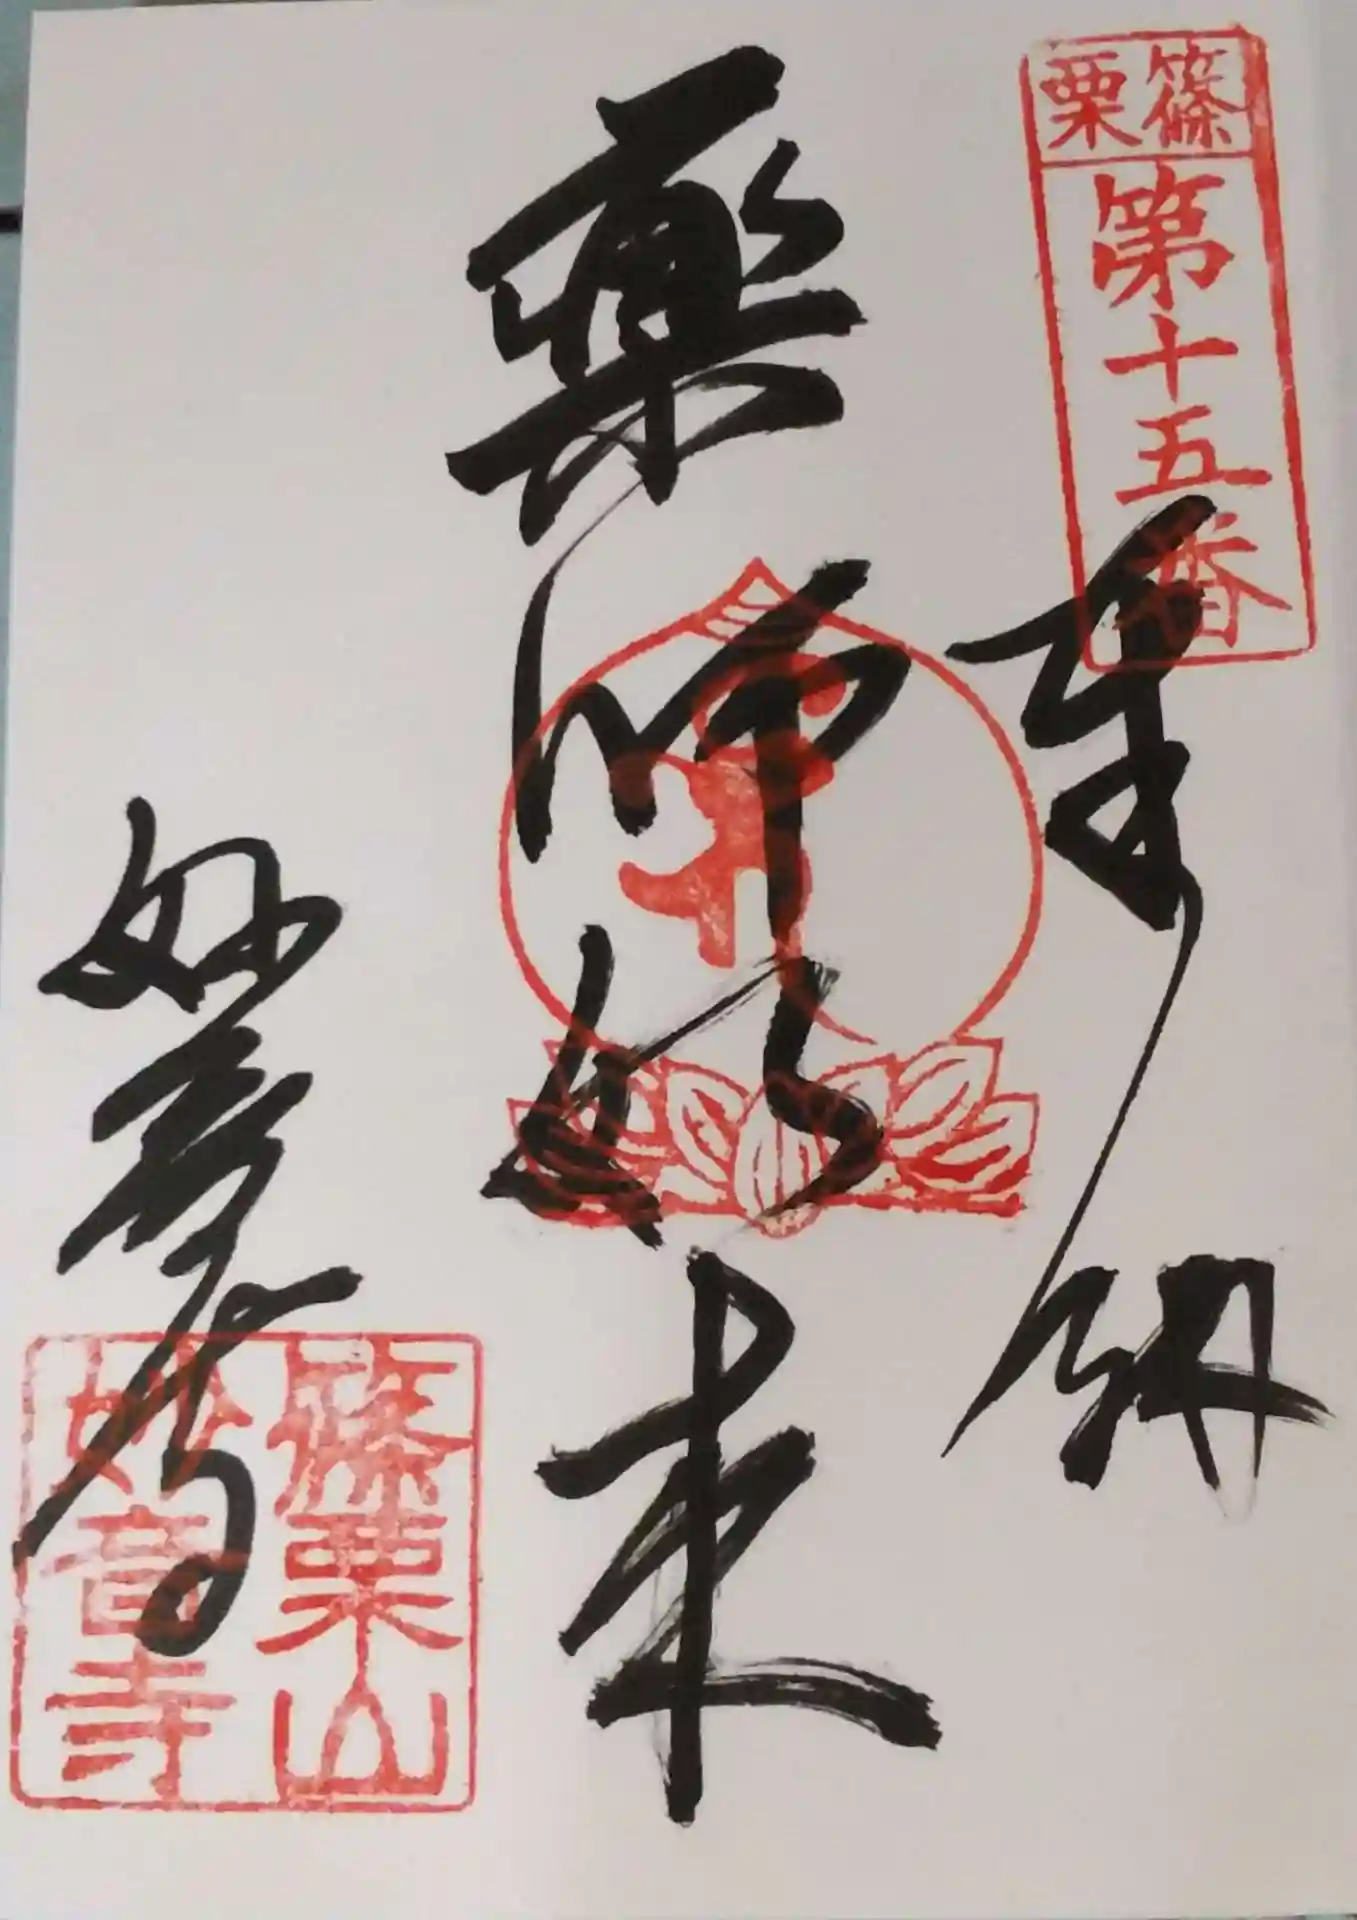 篠栗
第十五番
奉納
薬師如来
妙音寺
篠栗山
妙音寺